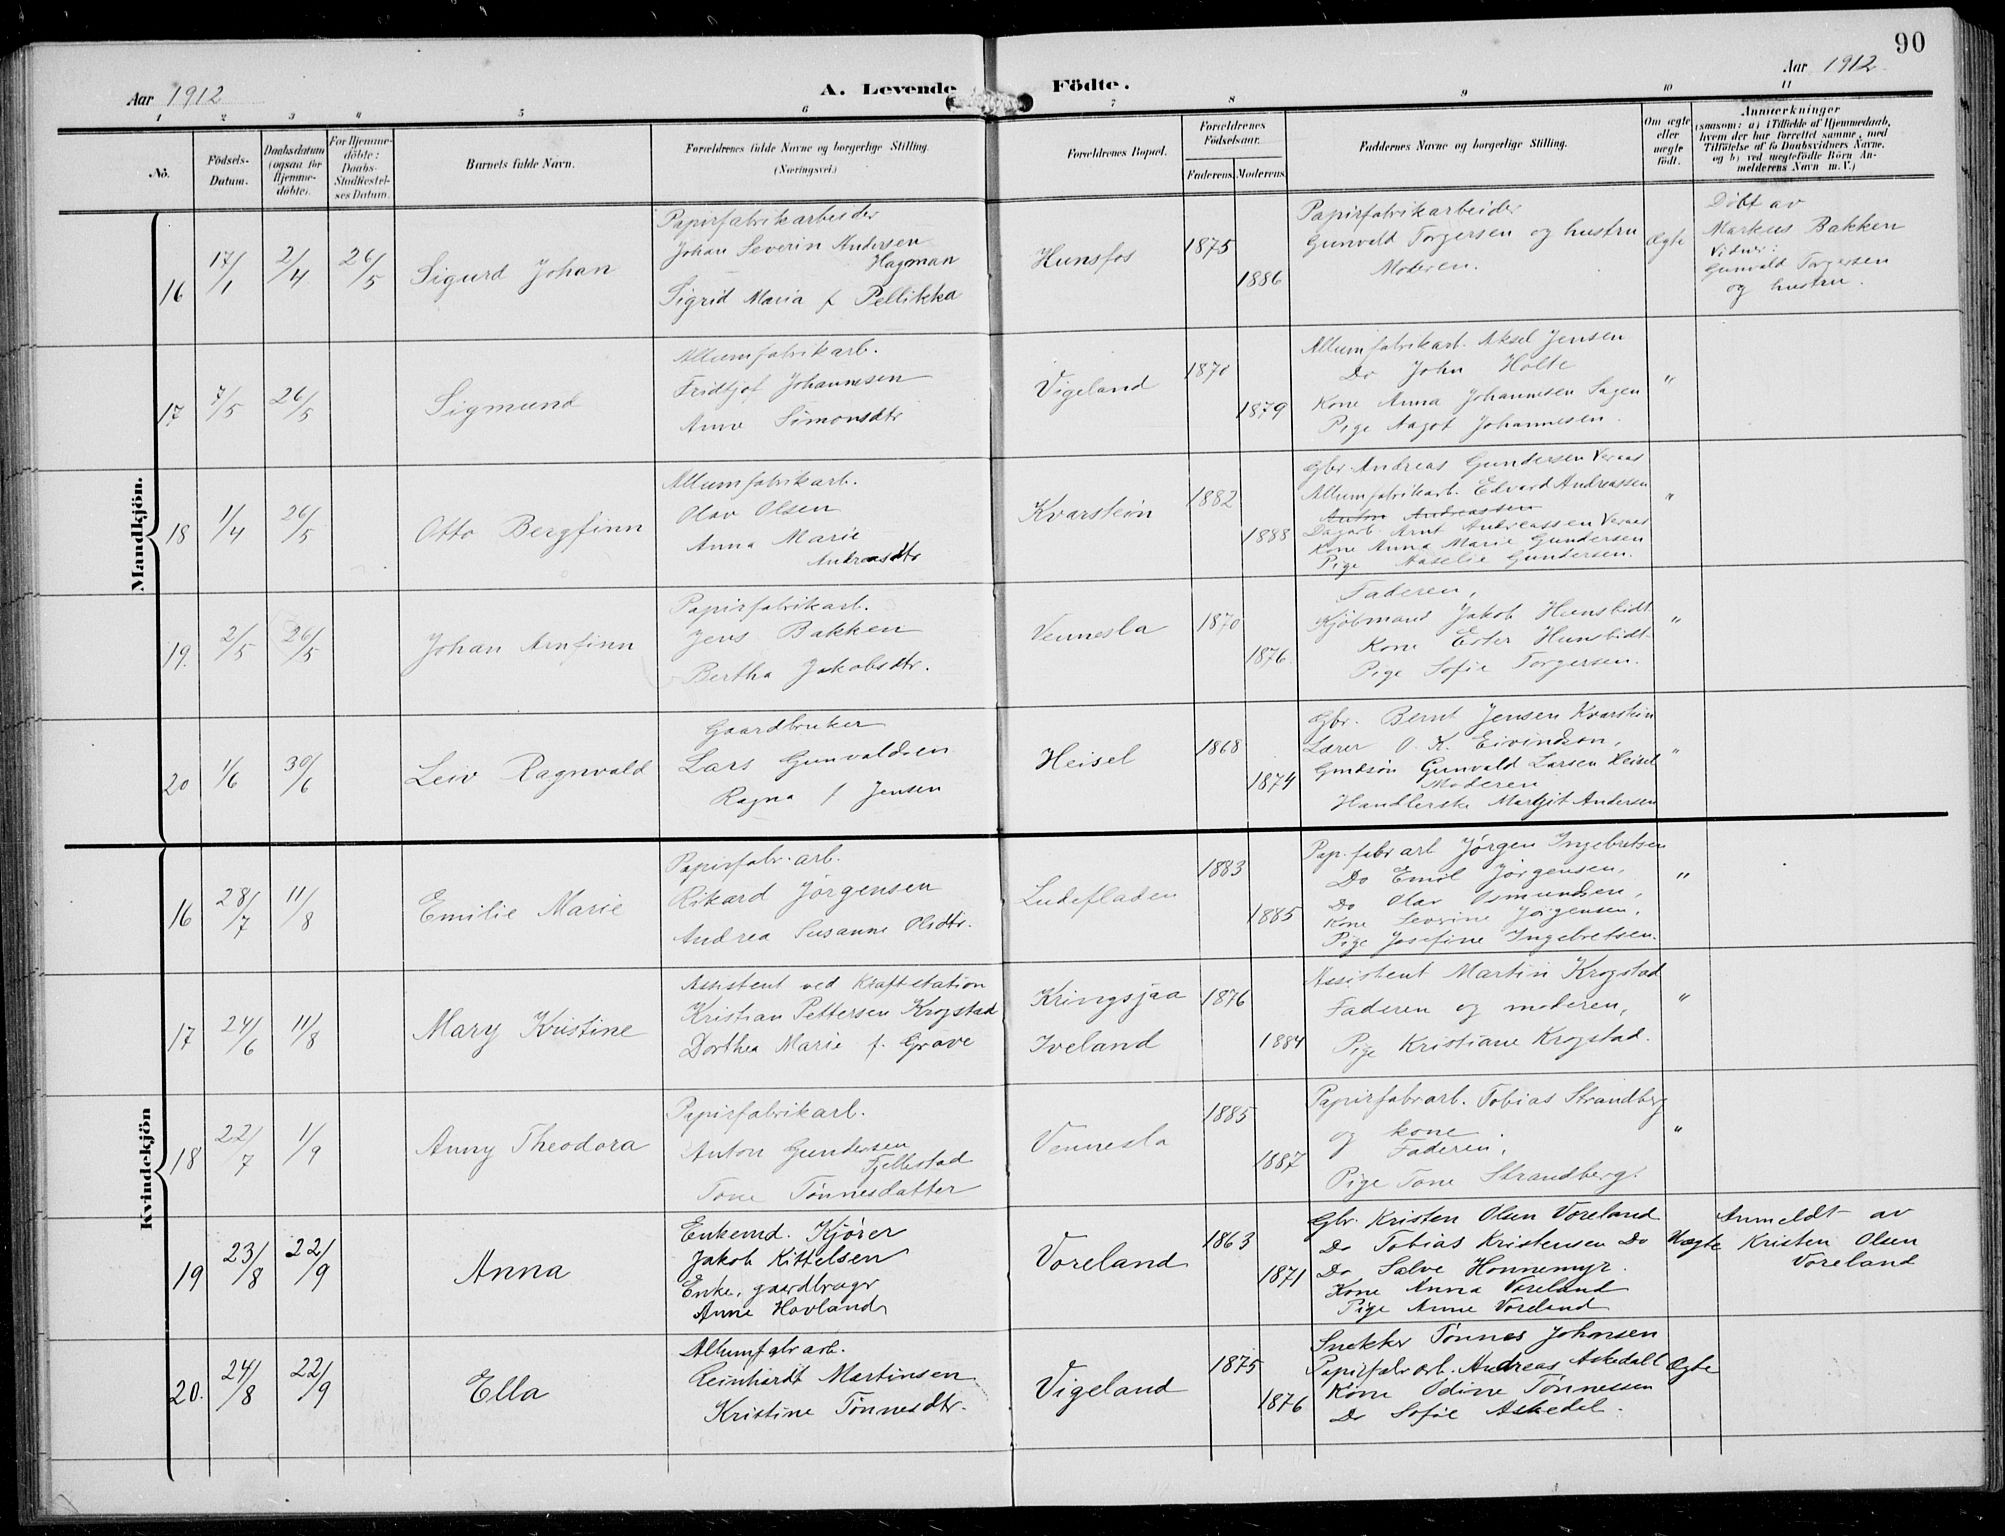 90
Aar 1912
A. Levende Födte.
Aar 1912
1 2 3 4 5 6 7 8 9 10 11
Nô.
Födsels-Datum.
Daabsdatum (ogsaa for Hjemmedöbte).
For Hjemmedöbte: Daabs-Stadfæstelses Datum.
Barnets fulde Navn.
Forældrenes fulde Navne og borgerlige Stilling.
(Næringsvei.)
Forældrenes Bopæl.
Forældrenes Födselsaar.
Faderens. Moderens.
Faddernes Navne og borgerlige Stilling.
Om ægte eller uægte födt.
Anmærkninger
(saasom: a) i Tilfælde af Hjemmedaab, hvem der har forrettet samme, med Tilföielse af to Daabsvidners Navne, og b) ved uægtefödte Börn Anmelderens Navn m. V.)
Mandkjön.
16 17/1 2/4 26/5 Sigurd Johan
Papirfabrikarbeider
Johan Severin Andersen
Hagman
Sigrid Maria f Pellikka
Hunsfos 1875 1886
Papirfabrikarbeider
Gunvald Torgersen og hustru
Moderen.
Ægte
Döbt av
Markus Bakken
Vidner:
Gunvald Torgersen
og hustru.
17 7/5 26/5 Sigmund
Allumfabrikarb.
Fridtjof Johannesen
Anne Simonsdtr
Vigeland 1870 1879
Allumfabrikarb. Aksel Jensen
Do John Holte
Kone Anna Johannesen Sagen
Pige Aagot Johannesen.
"
18 1/4 26/5 Otto Bergfinn
Allumfabrikarb.
Olav Olsen
Anna Marie
Andreasdtr
Kvarstein 1882 1888
Gbr. Andreas Gundersen Veraas
Allumfabrikarb. Edvard Andreassen
Anton Andreassen
Dagarb. Arnt Andreassen Veraas
Kone Anna Marie Gundersen
Pige Aaselie Gundersen.
"
19. 2/5 26/5 Johan Arnfinn
Papirfabrikarb.
Jens Bakken
Bertha Jakobsdtr.
Vennesla 1870 1876.
Faderen,
Kjöbmand Jakob Hunsbidt
Kone Ester Hunsbidt
Pige Sofie Torgersen.
"
20 1/6 30/6 Leiv Ragnvald
Gaardbruker
Lars Gunvaldsen
Ragna f Jensen
Heisel 1868 1874
Gbr. Bernt Jensen Kvarstein
Lærer O. K. Eivindson,
Grndsön Gunvald Larsen Heisel
Moderen
Handlerske Margit Andersen
"
Kvindekjön
16 28/7 11/8 Emilie Marie
Papirfabr. arb.
Rikard Jörgensen
Andrea Susanne Olsdtr.
Ludefladen 1883 1885
Pap. fabr arb Jörgen Ingebretsen
Do Emil Jörgensen,
Do Olav Osmundsen,
Kone Severine Jörgensen,
Pige Josefine Ingebretsen.
"
17 24/6 11/8 Mary Kristine
Assistent ved Kraftstation
Kristian Pettersen Krogstad
Dorthea Marie f. Grave
Kringsjaa
Iveland
1876 1884
Assistent Martin Krogstad
Faderen og moderen,
Pige Kristiane Krogstad.
"
18 22/7 1/9 Anny Theodora
Papirfabrikarb.
Anton Gundersen
Fjellestad
Tone Tönnesdatter
Vennesla 1885 1887
Papirfabrarb. Tobias Strandberg
og kone.
Faderen,
Pige Tone Strandberg.
"
19 23/8 22/9 Anna
Enkemd. Kjörer
Jakob Kittelsen
Enke, gaardbrager
Anne Hovland
Voreland 1863 1871
Gbr. Kristen Olsen Voreland
Do Tobias Kristensen Do
Do Salve Honnemyr.
Kone Anna Voreland
Pige Anne Voreland
Uægte
Anmeldt av
Kristen Olsen
Voreland
20. 24/8 22/9 Ella
Allumfabr arb.
Reinhardt Martinsen
Kristine Tönnesdtr.
Vigeland 1875 1876
Snekker Tönnes Johansen
Papirfabr arb. Andreas Askedal
Kone Odine Tönnessen
Do Sofie Askedal.
Ægte